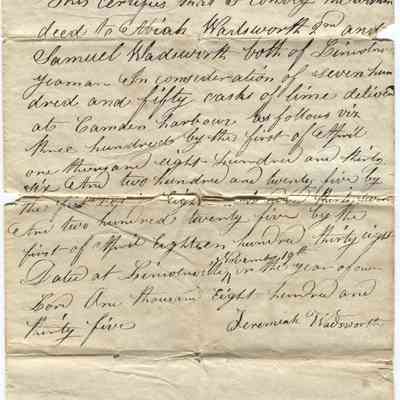 This certifies that I convey the within
deed to Abiah Wadsworth 2nd and
Samuel Wadsworth both of Lincolnvile
yeoman In consideration of seven hun
dred and fifty casks of lime deliverd
at Camden harbour as follows viz
three hundreds by the first of April
one thousand eight hundred and thirty
six And two hundred and twenty five by
the first of April Eighteen hundred thirty seven
And two hundreds twenty five by the
first of April Eighteen hundred thirty eight
November 19th
Dated at Lincolnville in the year of our
Lord One thousand Eight hundred and
thirty five
Jeremiah Wadsworth